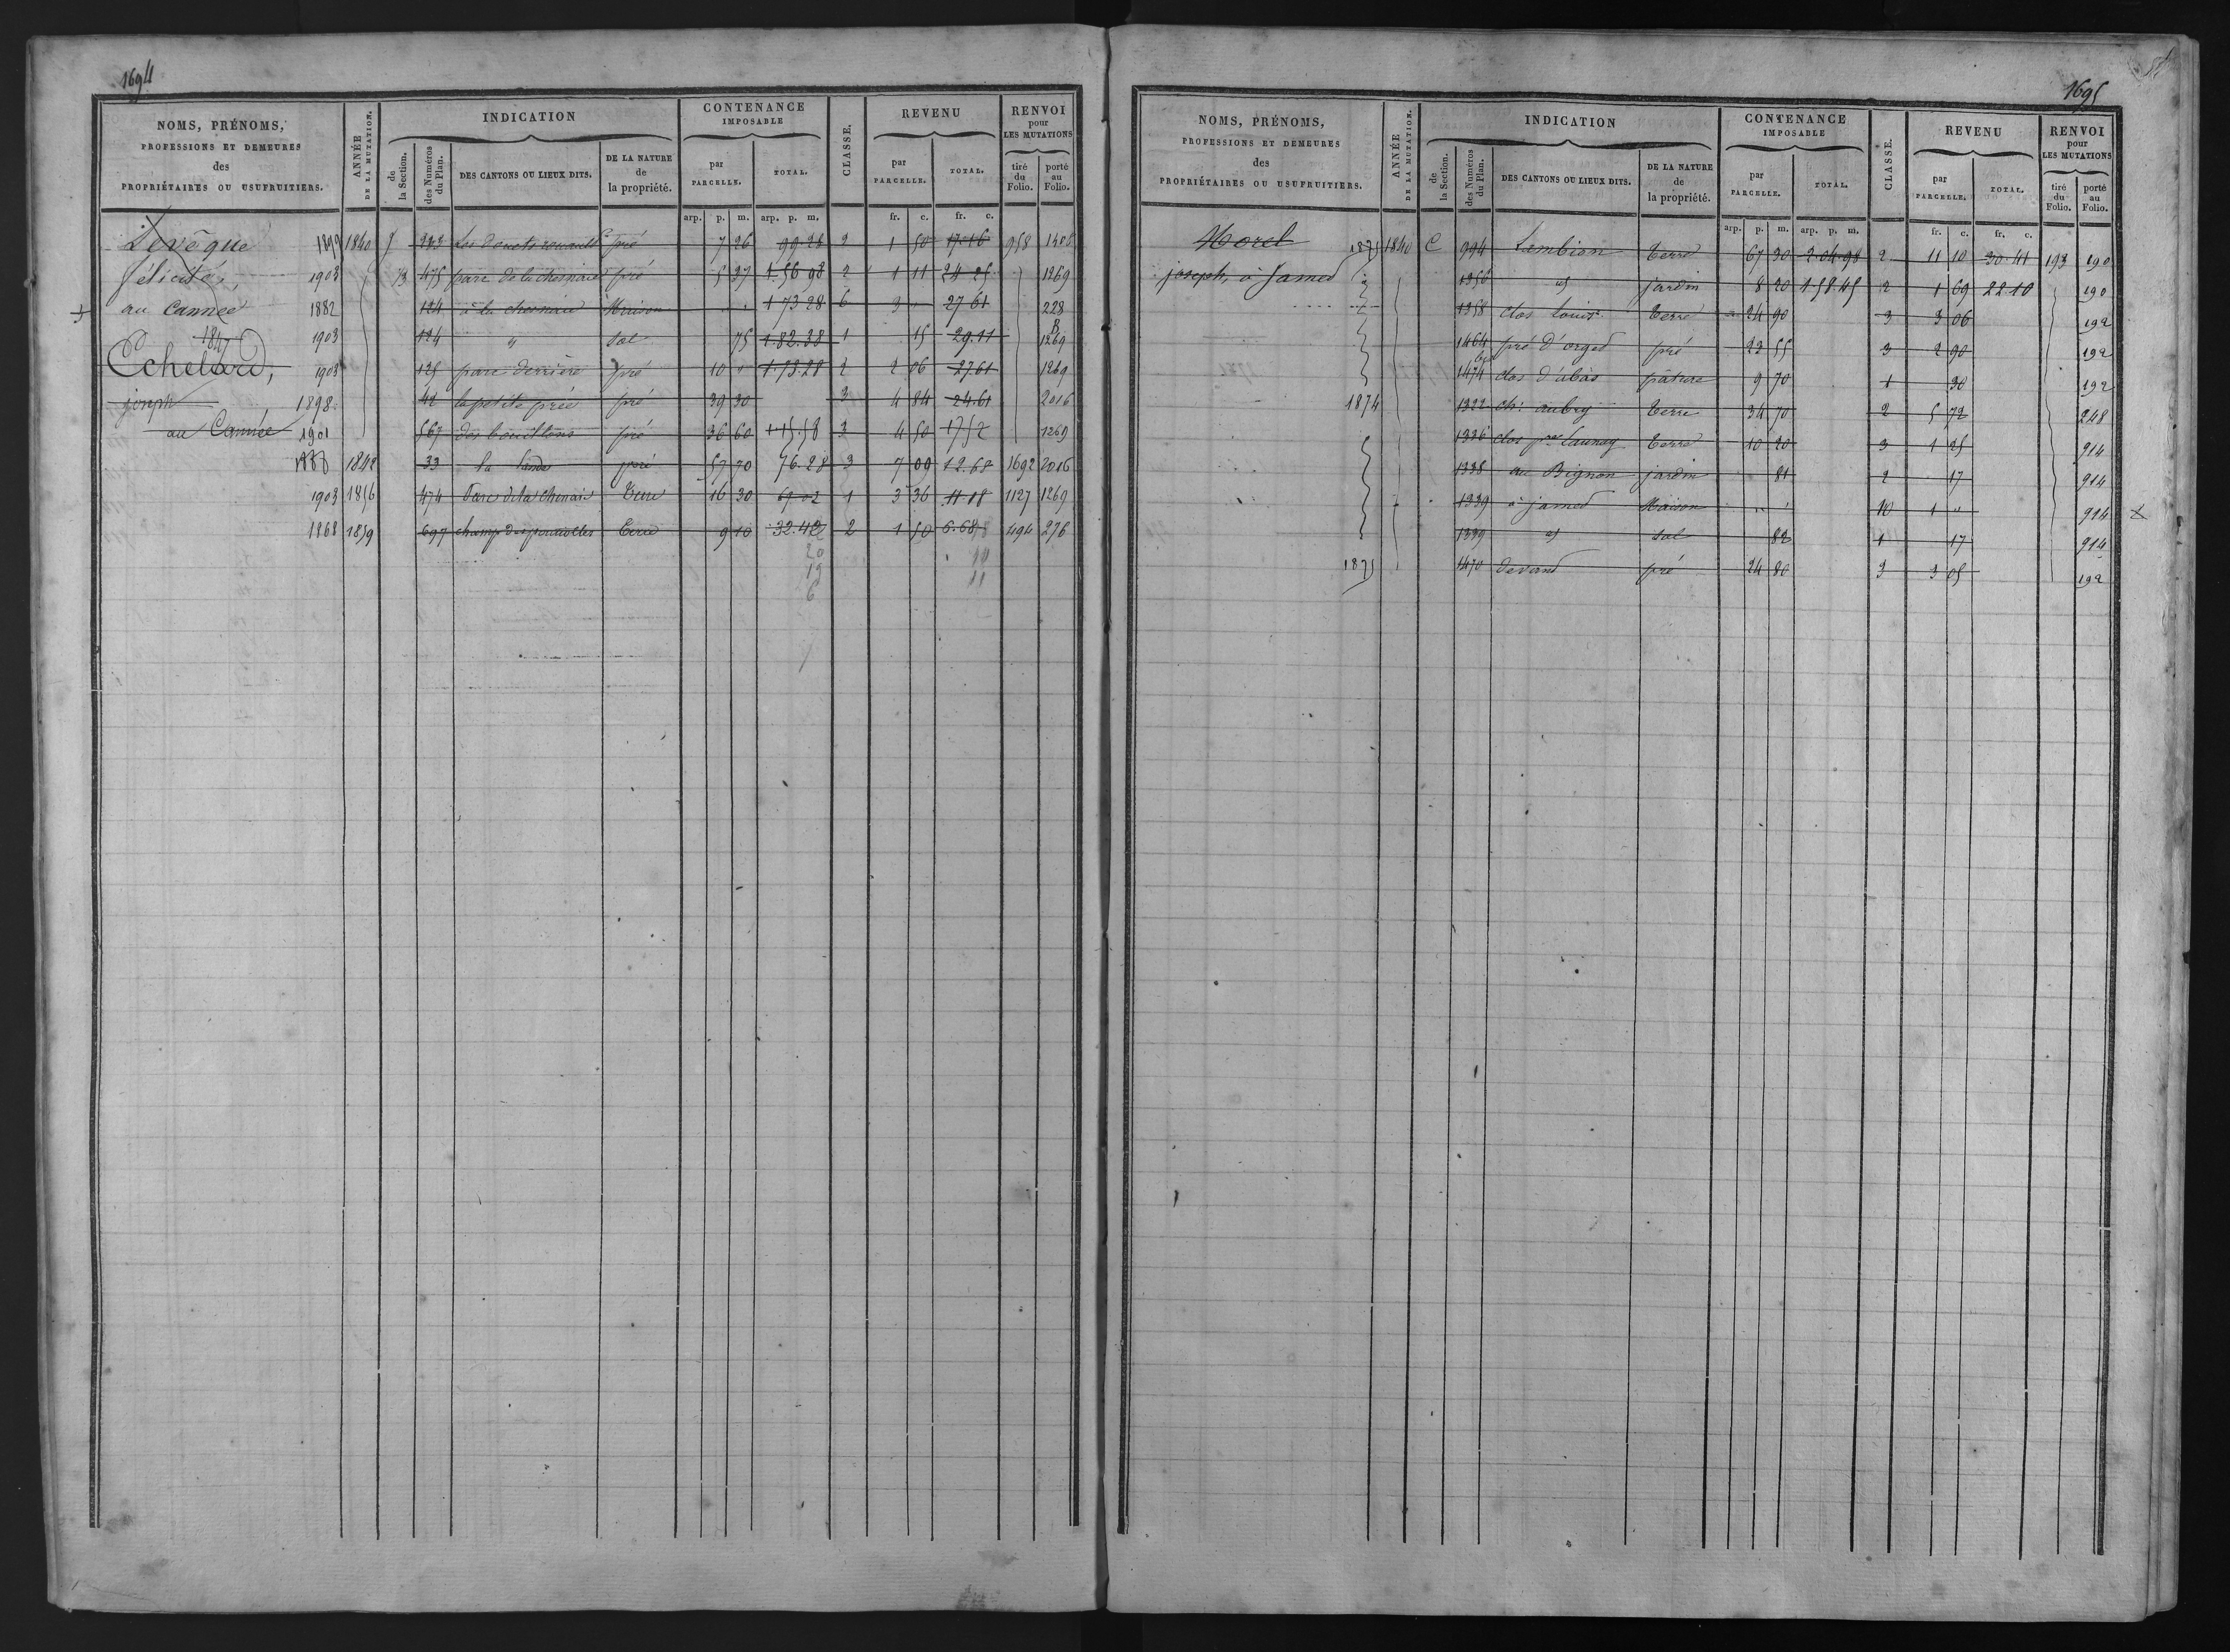 1694
NOMS, PRÉNOMS, PROFESSIONS ET DEMEURES des PROPRIÉTAIRES OU USUFRUITIERS.
ANNÉE DE LA MUTATION.
INDICATION
de la Section.
des Numéros du Plan.
DES CANTONS OU LIEUX DITS.
DE LA NATURE de la propriété.
CONTENANCE IMPOSABLE
par PARCELLE.
TOTAL.
CLASSE.
REVENU
par PARCELLE.
TOTAL.
RENVOI pour LES MUTATIONS
tiré du Folio.
porté au Folio.
arp. p. m. arp. p. m. fr. c. fr. c.
Levêque 1840 pré 7 26 99 28 2 1 50 17 16 958
félicité, 1903 B 475 parc de la chesnaie pré 5 37 1 56 98 2 1 11 24 25 1269
au Cannée 1882 124 à la chesnaie Maison " " 1 73 28 6 3 " 27 61 228
1847 1903 124 " Sol 75 1.82.38 1 15 29.11 1269
Echelard, 1903 125 parc derrière pré 10 " 1.73.28 2 2 06 27 61 1269
joseph 1898 42 la petite prée pré 39 30 3 4 84 24.61 2016
au Cannée 1901 567 des bouillons pré 36 60 1 15 58 3 4 50 17 52 1269
1842 33 la landes pré 57 70 76.28 3 7 09 12.68 1692 2016
1903 1856 474 Parc de la chenaie Terre 16 30 1 3 36 11 18 1127 1269
1868 1859 697 Terre 9 10 32.42 2 1 50 6.68 494 276
1695
NOMS, PRÉNOMS, PROFESSIONS ET DEMEURES des PROPRIÉTAIRES OU USUFRUITIERS.
ANNÉE DE LA MUTATION.
INDICATION
de la Section.
des Numéros du Plan.
DES CANTONS OU LIEUX DITS.
DE LA NATURE de la propriété.
CONTENANCE IMPOSABLE
par PARCELLE.
TOTAL.
CLASSE.
REVENU
par PARCELLE.
TOTAL.
RENVOI pour LES MUTATIONS
tiré du Folio.
porté au Folio.
arp. p. m. arp. p. m. fr. c. fr. c.
Morel 1875 1840 C 994 Lembion Terre 67 30 2.04.98 2 11 10 30.41 193 190
joseph, à Jamed 1356 id jardin 8 20 1.58.45 2 1 69 22 10 190
1358 clos Louis Terre 24 90 3 3 06 192
1464 pré d'orged pré 23 55 3 2 90 192
1474 clos d'abas pâture 9 70 1 30 192
1874 1322 ch: aubry Terre 34 70 2 5 72 248
1336 clos Launay Terre 10 20 3 1 25 914
1338 au Bignon jardin 81 2 17 914
1339 à jamed Maison " " 10 1 " 914
1339 id Sol 82 1 17 914
1875 1470 devand pré 24 80 3 3 05 192